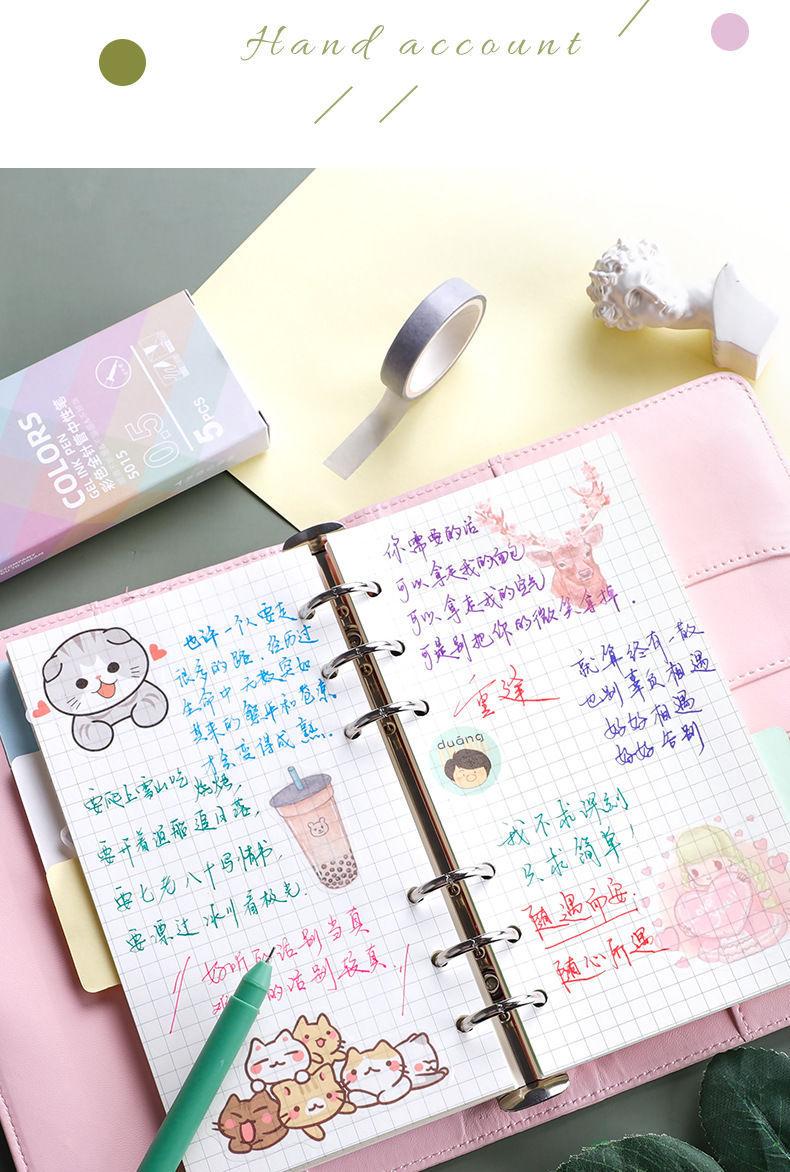 Hand account
COLORS
GEL INK PEN
彩色全针管中性笔
5015
0.5
5PCS
也许一个人要走
很多的路，经历过
生命中无数突如
其来的繁华和苍凉
才会变得成熟。
要爬上雪山吃烧烤，
要开着逃跑追日落，
要七老八十写情书，
要漂过冰川看极光.
好听的话别当真
的话别较真
你需要的话
可以拿走我的面包
可以拿走我的空气
可是别把你的微笑拿掉.
就算终有一散
也别辜负相遇
好好相遇
好好告别
duang
我不求深刻
只求简单!
随遇而安.
随心所遇